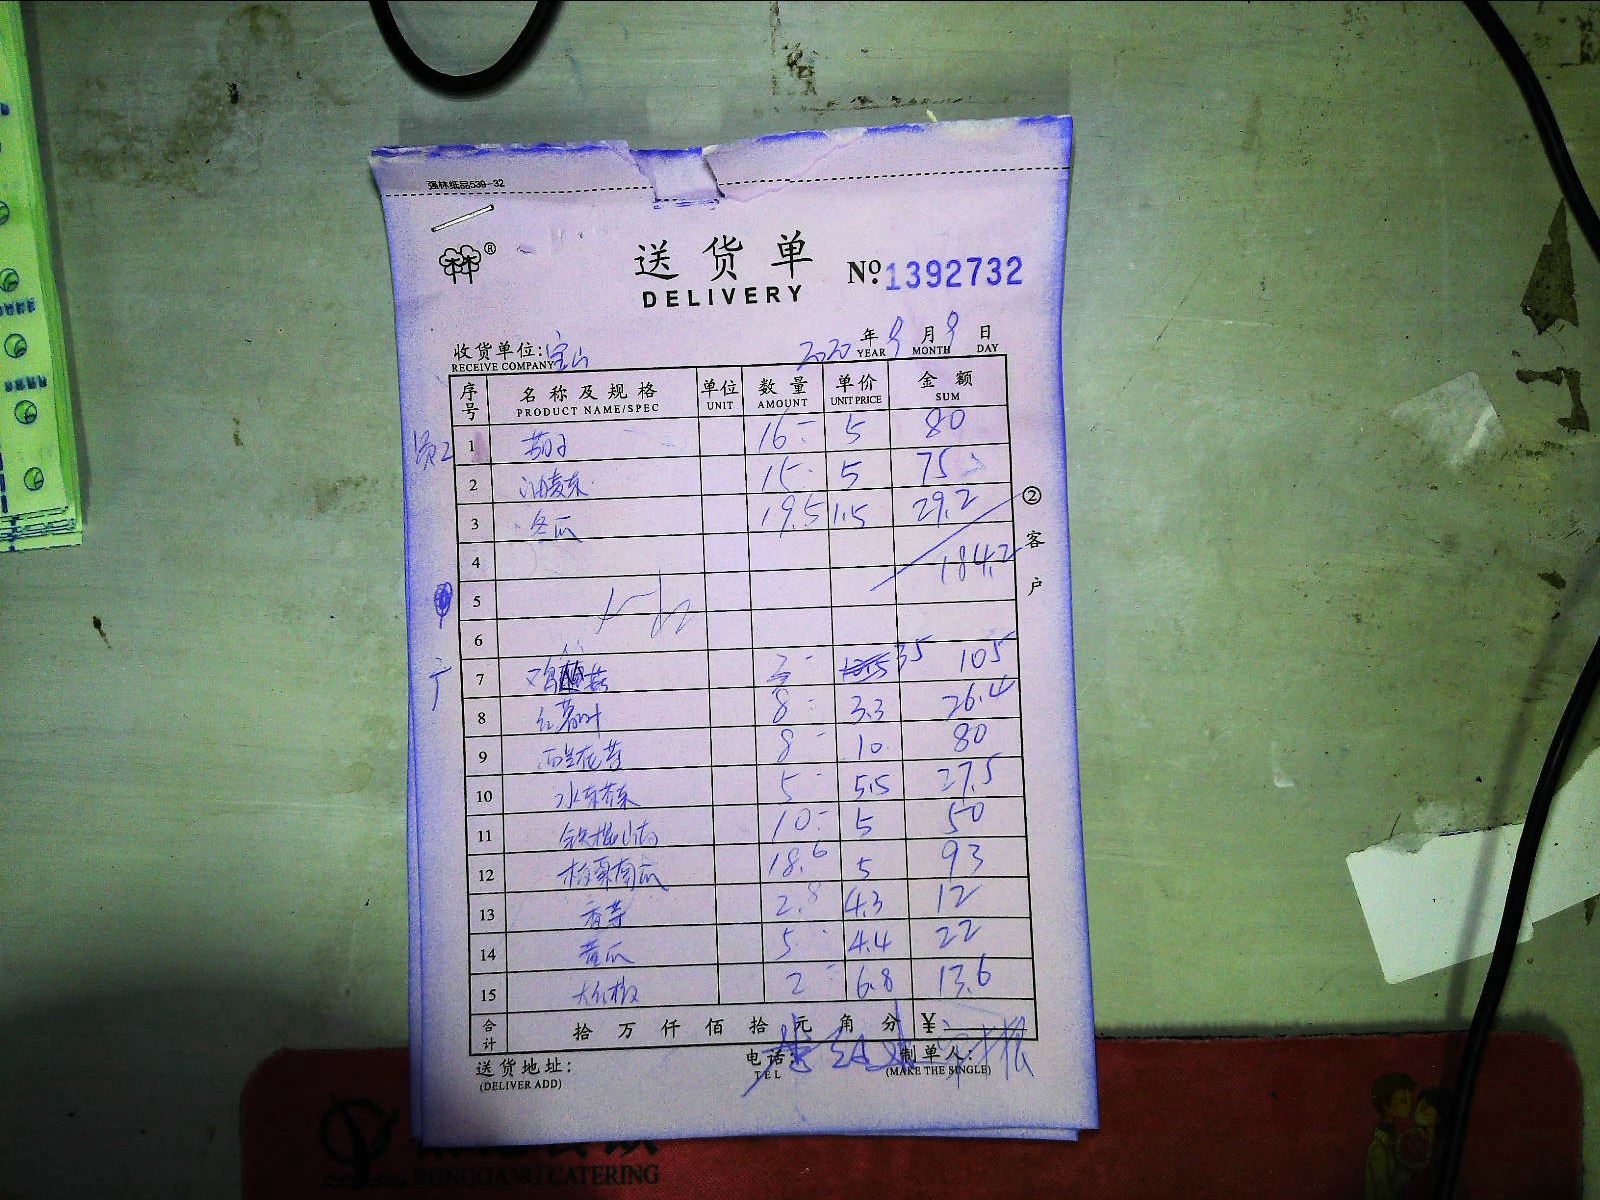 强林纸品539-32
林®
送货单
DELIVERY
№ 1392732
收货单位: 宝山 2020 年 9 月 9 日
RECEIVE COMPANY YEAR MONTH DAY
序号 名称及规格 单位 数量 单价 金额
PRODUCT NAME/SPEC UNIT AMOUNT UNIT PRICE SUM
员工 1 茄子 16- 5 80
2 油麦菜 15- 5 75
3 冬瓜 19.5 1.5 29.2
4 184.2
5
6
7 3- 35 105
8 红薯叶 8- 3.3 26.4
9 西兰花苔 8- 10 80
10 水东芥菜 5- 5.5 27.5
11 铁棍山药 10- 5 50
12 板栗南瓜 18.6 5 93
13 香芋 2.8 4.3 12
14 黄瓜 5- 4.4 22
15 大红椒 2- 6.8 13.6
合计 拾万仟佰拾元角分 ¥
② 客户
送货地址: 电话: 制单人:
(DELIVER ADD) TEL (MAKE THE SINGLE)
RONGGANG CATERING